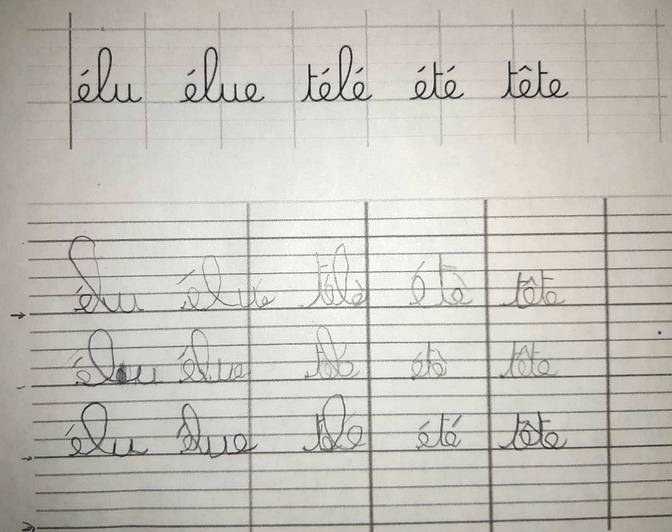 élu élue télé été tête
élu élue télè étè tête
élu élue télé étè tête
élu élue télé été tête